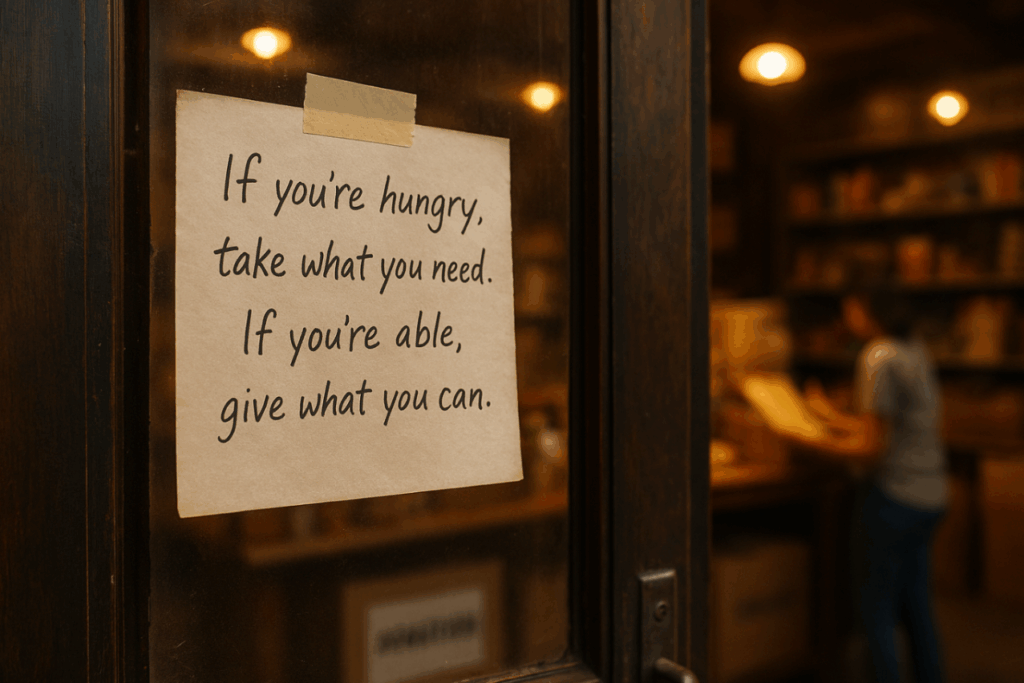 If you're hungry,
take what you need.
If you're able,
give what you can.